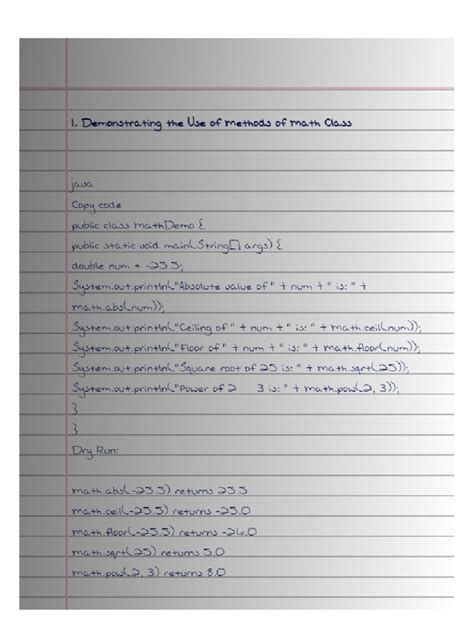 1. Demonstrating the Use of methods of math Class
java
Copy code
public class mathDemo {
public static void main(String[] args) {
double num = -25.5;
System.out.println("Absolute value of " + num + " is: " +
math.abs(num));
System.out.println("Ceiling of " + num + " is: " + math.ceil(num));
System.out.println("Floor of " + num + " is: " + math.floor(num));
System.out.println("Square root of 25 is: " + math.sqrt(25));
System.out.println("Power of 2 3 is: " + math.pow(2, 3));
}
}
Dry Run:
math.abs(-25.5) returns 25.5
math.ceil(-25.5) returns -25.0
math.floor(-25.5) returns -26.0
math.sqrt(25) returns 5.0
math.pow(2, 3) returns 8.0